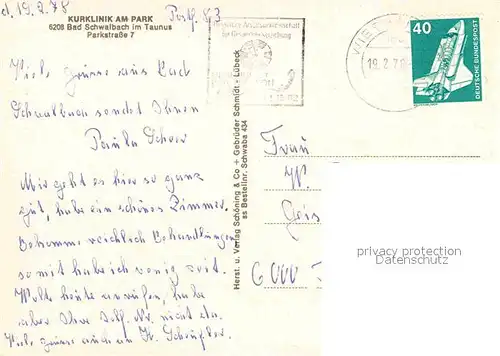 d. 19.2.78
Postf. 83
KURKLINIK AM PARK
6208 Bad Schwalbach im Taunus
Parkstraße 7
Viele Grüsse aus Bad
Schwalbach sendet Ihnen
Paula
Mir geht es hier so ganz
gut, habe ein schönes Zimmer.
Bekomme reichlich Behandlungen
somit habe ich wenig Zeit.
Wollte heute anrufen, habe
aber Ihre Telf. Nr. nicht da.
Viele Grüsse auch an Fr.
Herst. u. Verlag Schöning & Co + Gebrüder Schmidt - Lübeck
as Bestellnr. Schwaba 434
WIES
19.2.78
40
DEUTSCHE BUNDESPOST
Frau
6000
privacy protection
Datenschutz